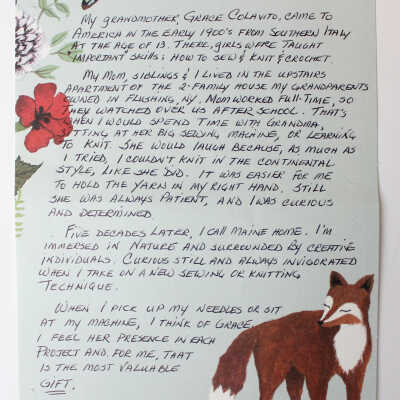 My grandmother, Grace Colavito, came to
America in the early 1900's from Southern Italy
at the age of 13. There, girls were taught
important skills: how to sew & knit & crochet.
My Mom, siblings & I lived in the upstairs
apartment of the 2-family house my grandparents
owned in Flushing, NY. Mom worked full-time, so
they watched over us after school. That's
when I would spend time with Grandma.
Sitting at her big sewing machine, or learning
to knit. She would laugh because, as much as
I tried, I couldn't knit in the continental
style, like she did. It was easier for me
to hold the yarn in my right hand. Still
she was always patient, and I was curious
and determined.
Five decades later, I call Maine home. I'm
immersed in nature and surrounded by creative
individuals. Curious still and always invigorated
when I take on a new sewing or knitting
technique.
When I pick up my needles or sit
at my machine, I think of Grace.
I feel her presence in each
project and, for me, that
is the most valuable
gift.